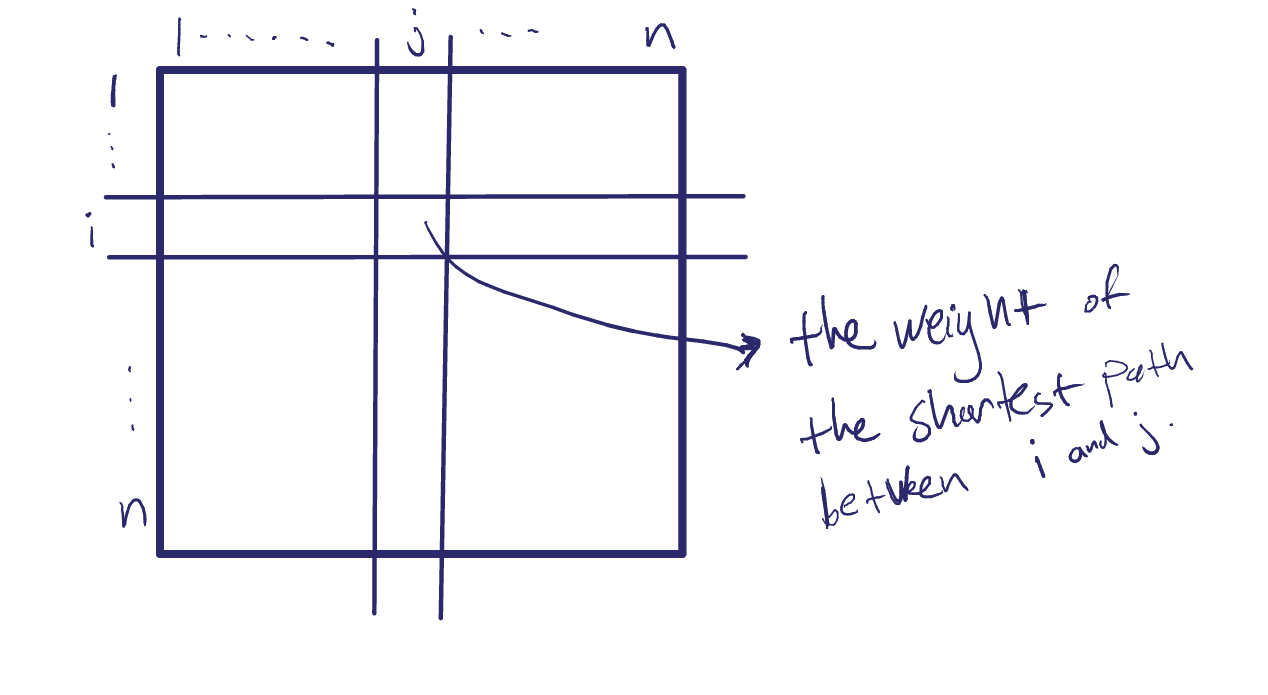 1 ...... j ... n
1
⋮
i
⋮
n
the weight of
the shortest path
between i and j.